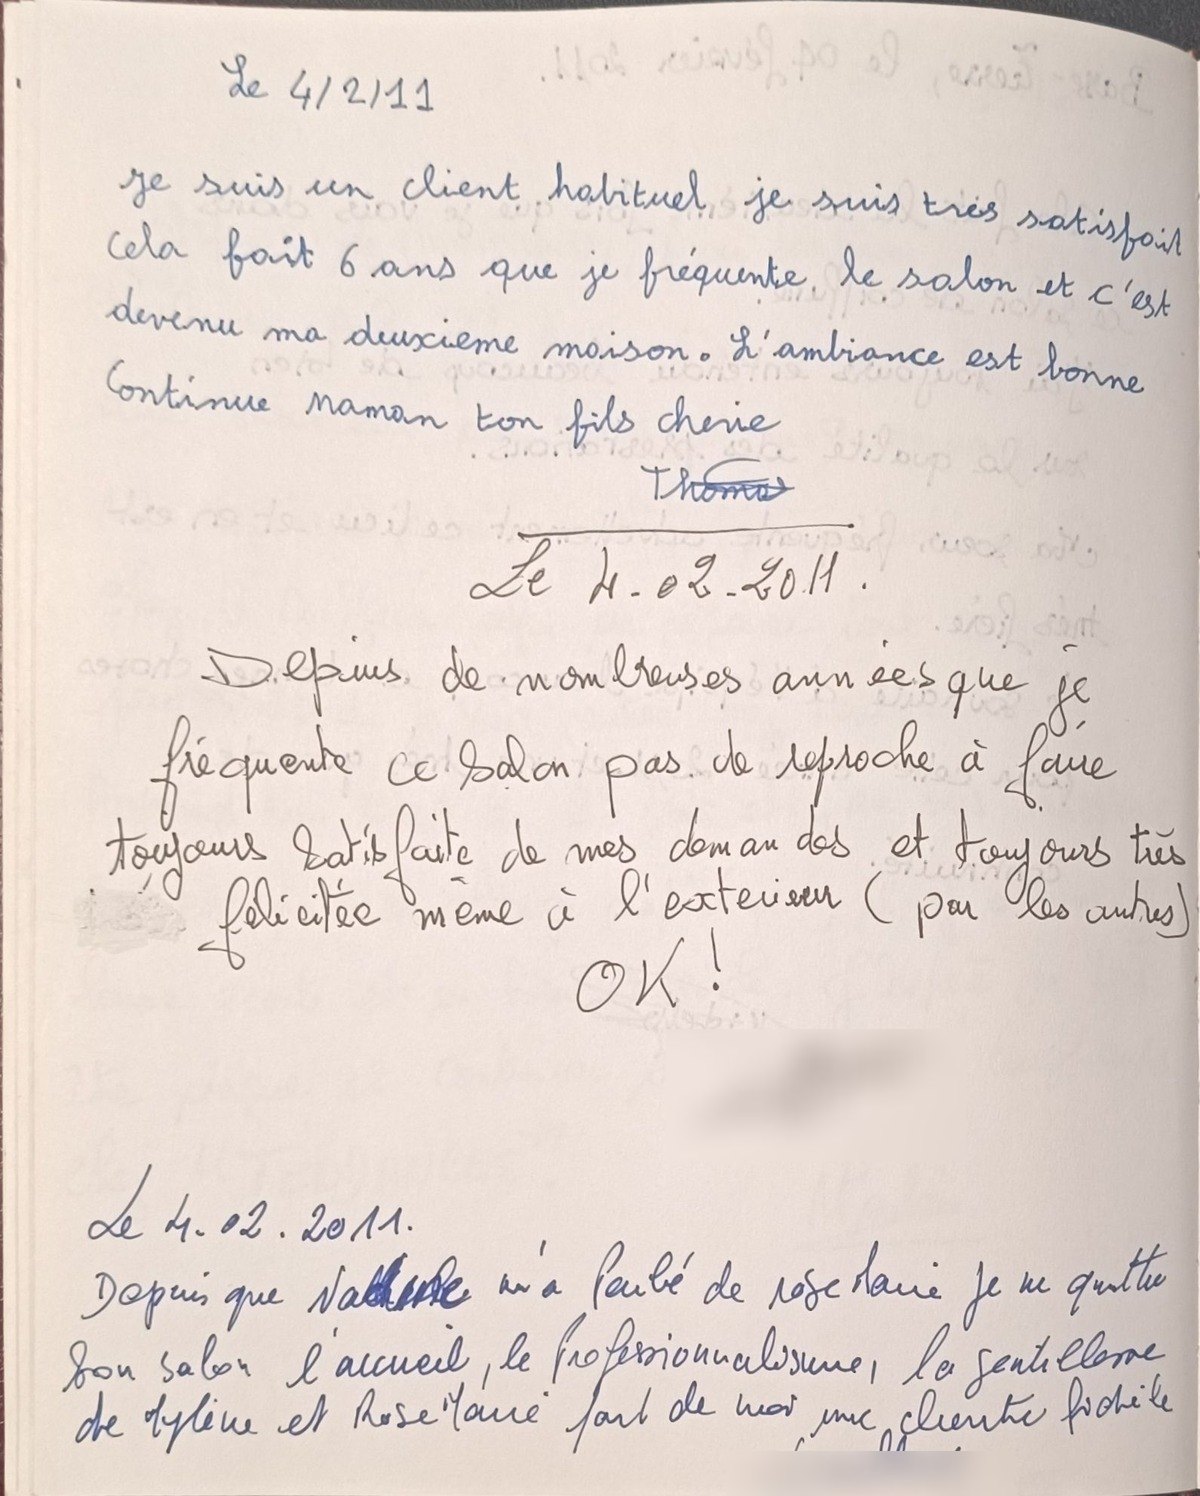 Le 4/2/11
Je suis un client habituel je suis très satisfait
Cela fait 6 ans que je fréquente le salon et c'est
devenu ma deuxieme maison. L'ambiance est bonne
Continue maman ton fils cherie
Thomas
Le 4-02-2011.
Depius de nombreuses années que je
fréquente ce salon pas de reproche à faire
toujours satisfaite de mes demandes et toujours très
félicitée même à l'exterieur (par les autres)
OK!
Le 4.02.2011.
Depuis que m'a Parlé de rose Marie je ne quitte
son salon l'accueil, le Professionnalisme, la gentillesse
de Mylène et Rose Marie font de moi une cliente fidèle